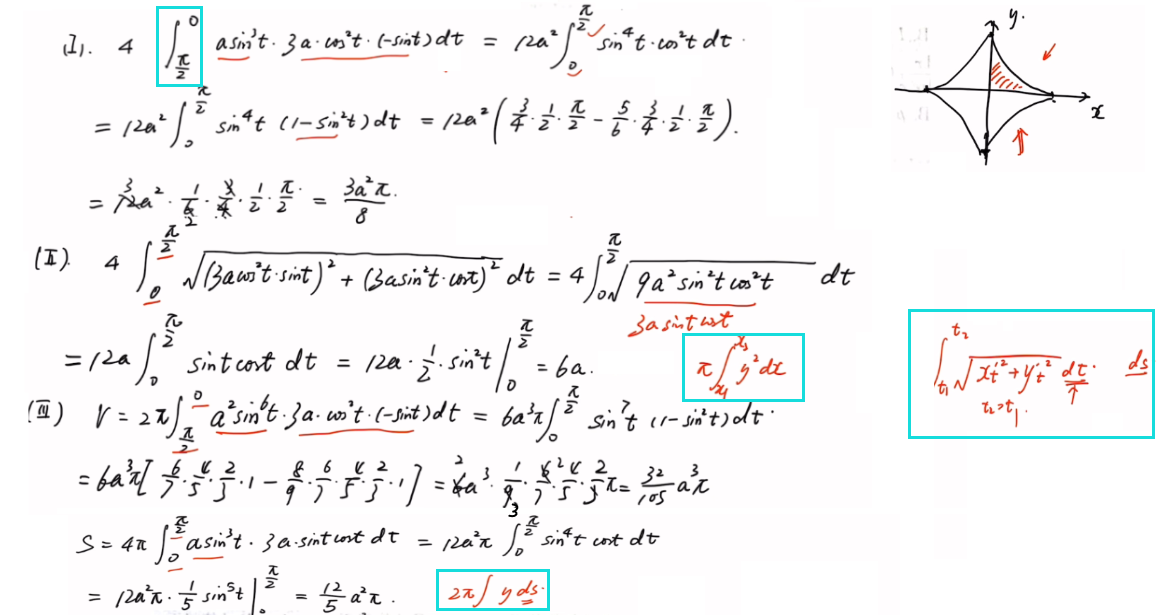 (I). 4 ∫_{π/2}^{0} asin³t · 3a·cos²t·(-sint)dt = 12a² ∫_0^{π/2} sin⁴t·cos²t dt.
= 12a² ∫_0^{π/2} sin⁴t (1-sin²t)dt = 12a² (3/4·1/2·π/2 - 5/6·3/4·1/2·π/2).
= 12a² · 1/6 · 3/4 · 1/2 · π/2 = 3a²π/8
3
2
y.
x
(II). 4 ∫_0^{π/2} √((3acos²t·sint)² + (3asin²t·cost)²) dt = 4 ∫_0^{π/2} √(9a²sin²tcos²t) dt
3asintcost
= 12a ∫_0^{π/2} sintcost dt = 12a · 1/2 · sin²t |_0^{π/2} = 6a.
π ∫_{x₁}^{x₂} y²dx
∫_{t₁}^{t₂} √(x't² + y't²) dt. ds
t₂>t₁
(III) V = 2π ∫_{π/2}^{0} a²sin⁶t · 3a·cos²t·(-sint)dt = 6a³π ∫_0^{π/2} sin⁷t (1-sin²t)dt.
= 6a³π[6/7·4/5·2/3·1 - 8/9·6/7·4/5·2/3·1] = 6a³ · 1/9 · 6/7 · 4/5 · 2/3 π = 32/105 a³π
2
2
3
S = 4π ∫_0^{π/2} asin³t · 3a·sintcost dt = 12a²π ∫_0^{π/2} sin⁴t cost dt
= 12a²π · 1/5 sin⁵t |_0^{π/2} = 12/5 a²π.
2π ∫ y ds.